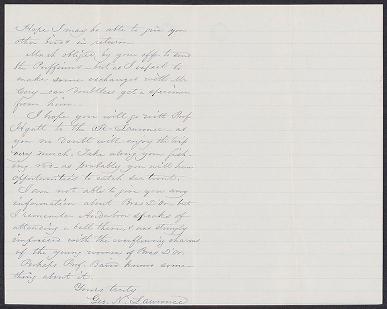 Hope I may be able to give you
other birds in return.
Much obliged by your offer to send
the Puffinus - but as I expect to
make some exchanges with Mr
Cory - can doubtless get a specimen
from him.
I hope you will go with Prof
Hyatt to the St. Lawrence - as
you no doubt will enjoy the trip
very much. Take along your fish-
ing rod as probably you will have
opportunities to catch sea trout.
I am not able to give you any
information about Bras D'Or but
I remember Audubon speaks of
attending a ball there, & was strongly
impressed with the overflowing charms
of the young women of Bras D'Or.
Perhaps Prof. Baird knows some-
thing about it.
Yours truly
Geo. N. Lawrence